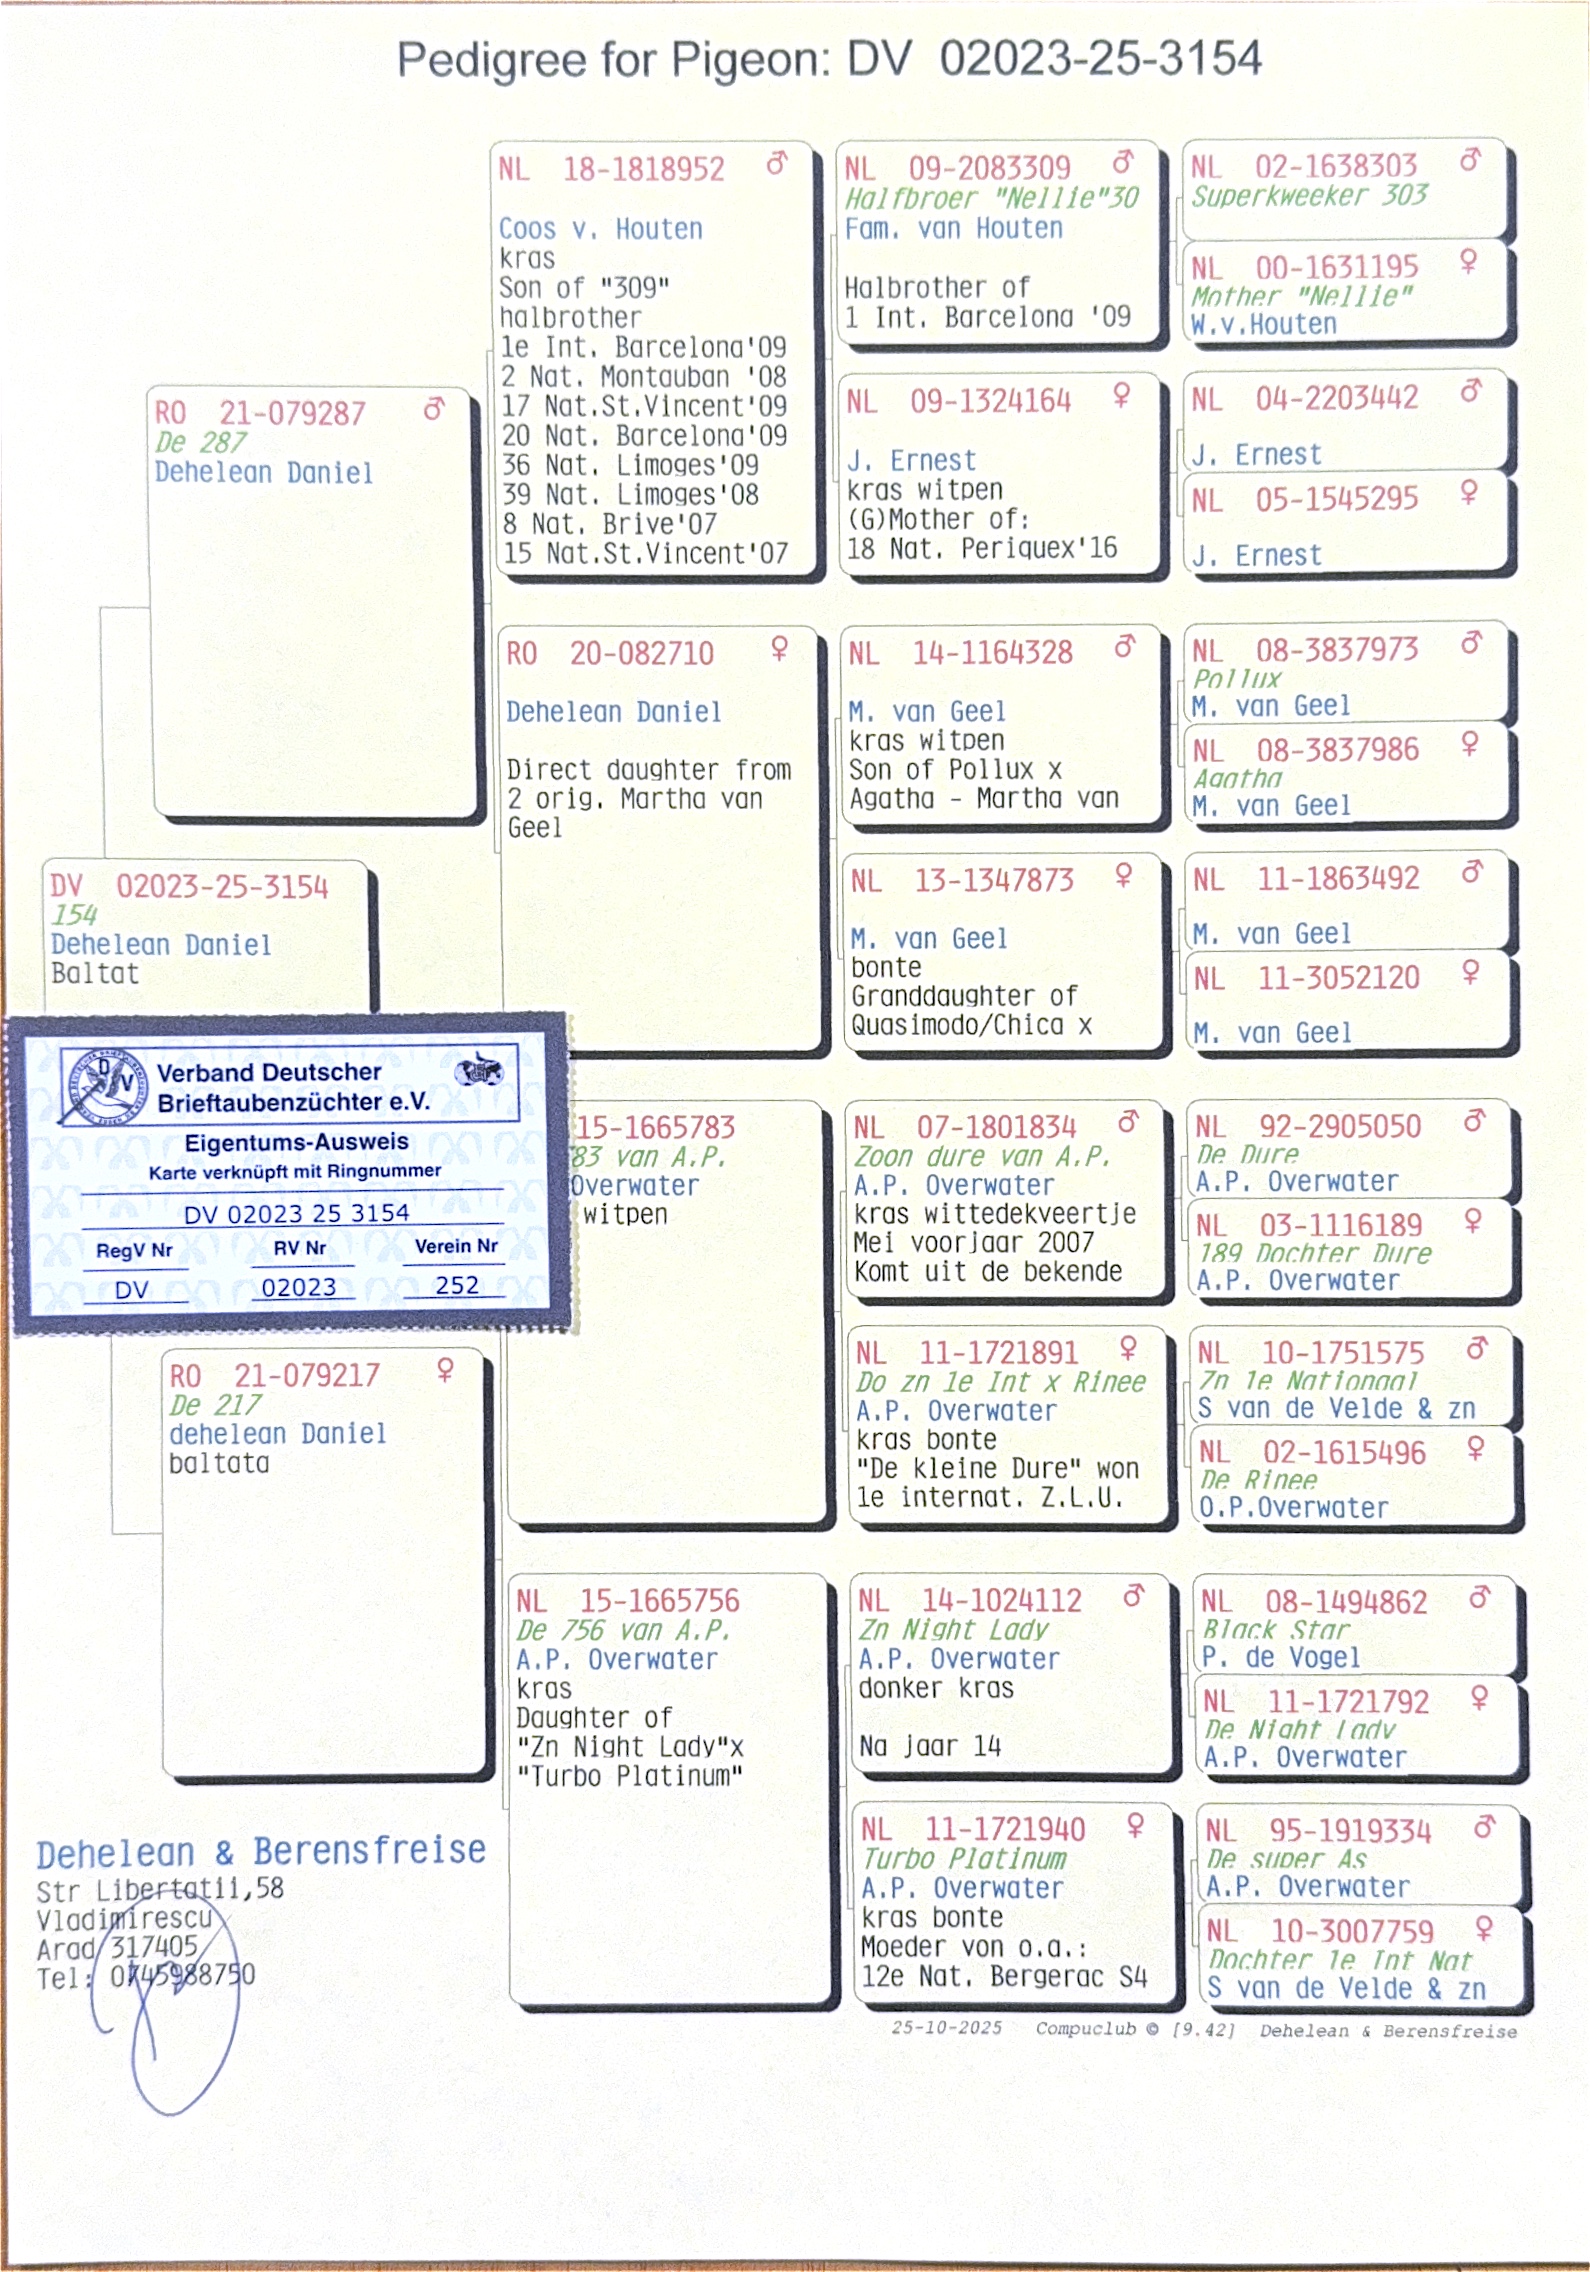 Pedigree for Pigeon: DV 02023-25-3154
NL 18-1818952 ♂
Coos v. Houten
kras
Son of "309"
halbrother
1e Int. Barcelona'09
2 Nat. Montauban '08
17 Nat.St.Vincent'09
20 Nat. Barcelona'09
36 Nat. Limoges'09
39 Nat. Limoges'08
8 Nat. Brive'07
15 Nat.St.Vincent'07
NL 09-2083309 ♂
Halfbroer "Nellie"30
Fam. van Houten
Halbrother of
1 Int. Barcelona '09
NL 02-1638303 ♂
Superkweeker 303
NL 00-1631195 ♀
Mother "Nellie"
W.v.Houten
NL 09-1324164 ♀
J. Ernest
kras witpen
(G)Mother of:
18 Nat. Periquex'16
NL 04-2203442 ♂
J. Ernest
NL 05-1545295 ♀
J. Ernest
RO 21-079287 ♂
De 287
Dehelean Daniel
RO 20-082710 ♀
Dehelean Daniel
Direct daughter from
2 orig. Martha van
Geel
NL 14-1164328 ♂
M. van Geel
kras witpen
Son of Pollux x
Agatha - Martha van
NL 08-3837973 ♂
Pollux
M. van Geel
NL 08-3837986 ♀
Agatha
M. van Geel
NL 13-1347873 ♀
M. van Geel
bonte
Granddaughter of
Quasimodo/Chica x
NL 11-1863492 ♂
M. van Geel
NL 11-3052120 ♀
M. van Geel
DV 02023-25-3154
154
Dehelean Daniel
Baltat
Verband Deutscher
Brieftaubenzüchter e.V.
Eigentums-Ausweis
Karte verknüpft mit Ringnummer
DV 02023 25 3154
RegV Nr RV Nr Verein Nr
DV 02023 252
15-1665783
83 van A.P.
Overwater
witpen
NL 07-1801834 ♂
Zoon dure van A.P.
A.P. Overwater
kras wittedekveertje
Mei voorjaar 2007
Komt uit de bekende
NL 92-2905050 ♂
De Dure
A.P. Overwater
NL 03-1116189 ♀
189 Dochter Dure
A.P. Overwater
NL 11-1721891 ♀
Do zn 1e Int x Rinee
A.P. Overwater
kras bonte
"De kleine Dure" won
1e internat. Z.L.U.
NL 10-1751575 ♂
Zn 1e Nationaal
S van de Velde & zn
NL 02-1615496 ♀
De Rinee
O.P.Overwater
RO 21-079217 ♀
De 217
dehelean Daniel
baltata
NL 15-1665756
De 756 van A.P.
A.P. Overwater
kras
Daughter of
"Zn Night Lady"x
"Turbo Platinum"
NL 14-1024112 ♂
Zn Night Lady
A.P. Overwater
donker kras
Na jaar 14
NL 08-1494862 ♂
Black Star
P. de Vogel
NL 11-1721792 ♀
De Night Lady
A.P. Overwater
NL 11-1721940 ♀
Turbo Platinum
A.P. Overwater
kras bonte
Moeder von o.a.:
12e Nat. Bergerac S4
NL 95-1919334 ♂
De super As
A.P. Overwater
NL 10-3007759 ♀
Dochter 1e Int Nat
S van de Velde & zn
Dehelean & Berensfreise
Str Libertatii,58
Vladimirescu
Arad 317405
Tel: 0745988750
25-10-2025 Compuclub © [9.42] Dehelean & Berensfreise